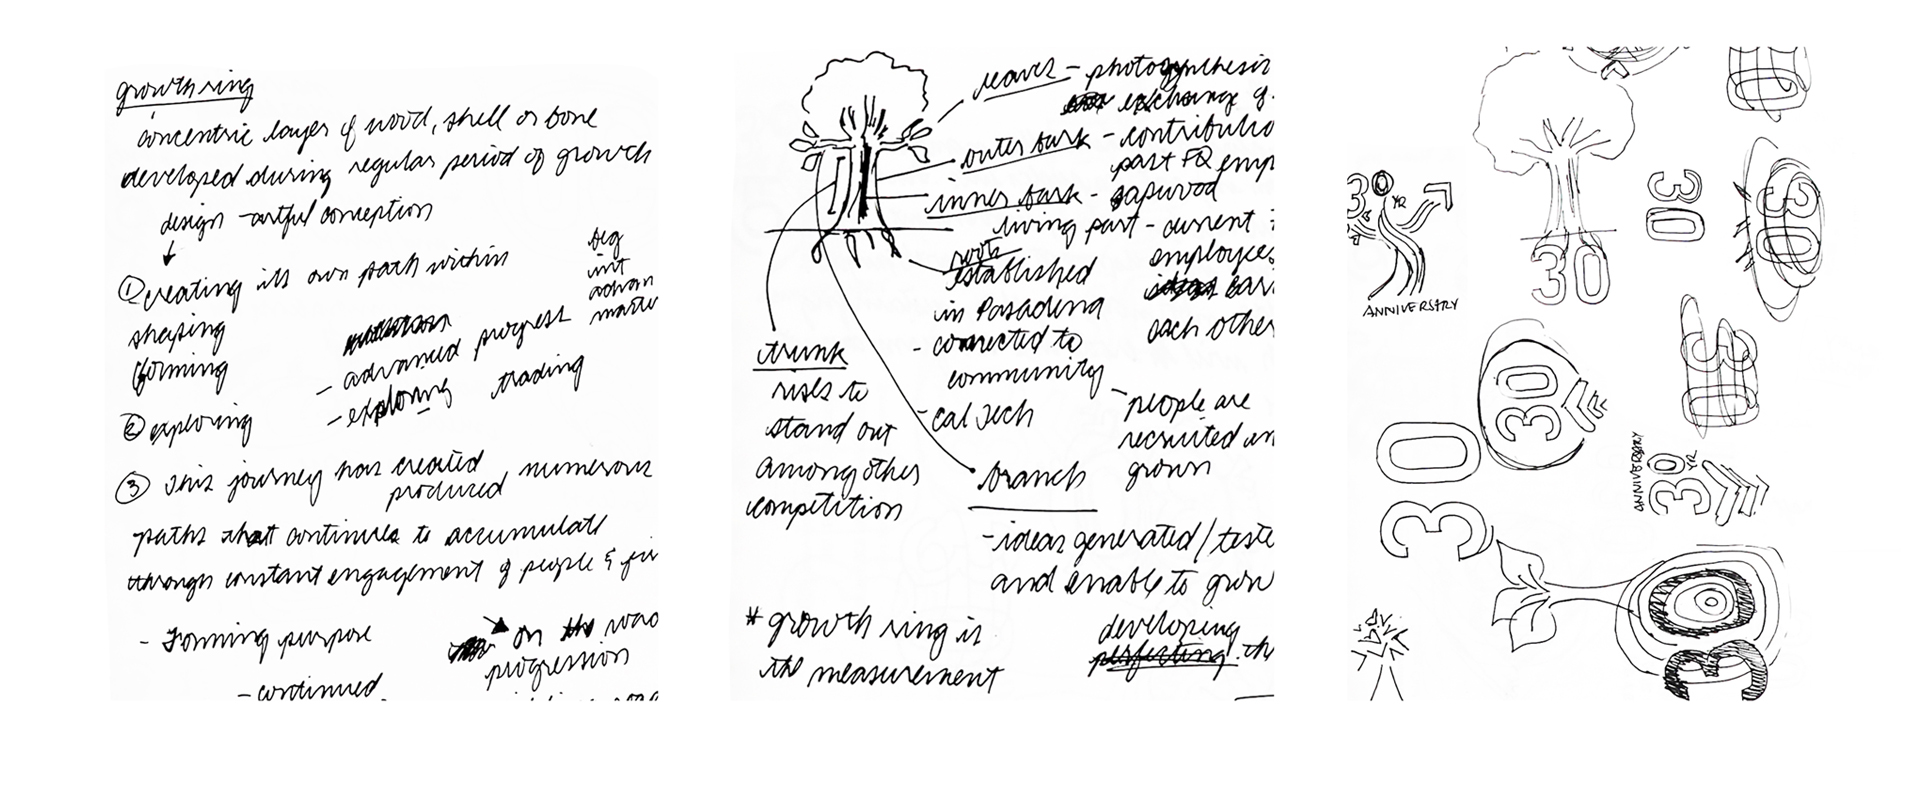 growth ring
concentric layer of wood, shell or bone
developed during regular period of growth
design - artful conception
① creating its own path within
shaping
forming
big
init
advan
matte
- advanced progress
- exploring trading
② exploring
③ this journey has created
produced numerous
paths that continues to accumulate
through constant engagement of people &
- Forming purpose
on
progression
- continued
leaves - photosynthesis
exchang g.
outer bark - contributio
past FQ emp
inner bark - sapwood
living part - current
employees
each other
roots
established
in Pasadena
- connected to
community
- Cal Tech
- people are
recruited
grown
trunk
rises to
stand out
among other
competition
branch
- ideas generated/teste
and enable to grow
* growth ring is
the measurement
developing
perfecting
30 YR
ANNIVERSARY
30
30
30
30
30
30
ANNIVERSARY
30 YR
30
30